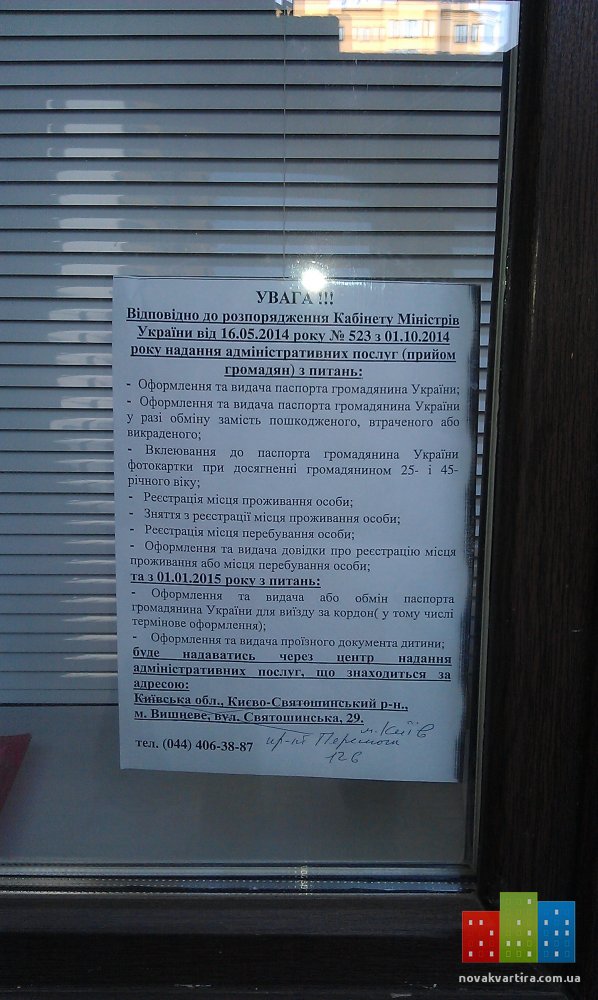 УВАГА !!!
Відповідно до розпорядження Кабінету Міністрів
України від 16.05.2014 року № 523 з 01.10.2014
року надання адміністративних послуг (прийом
громадян) з питань:
- Оформлення та видача паспорта громадянина України;
- Оформлення та видача паспорта громадянина України
у разі обміну замість пошкодженого, втраченого або
викраденого;
- Вклеювання до паспорта громадянина України
фотокартки при досягненні громадянином 25- і 45-
річного віку;
- Реєстрація місця проживання особи;
- Зняття з реєстрації місця проживання особи;
- Реєстрація місця перебування особи;
- Оформлення та видача довідки про реєстрацію місця
проживання або місця перебування особи;
та з 01.01.2015 року з питань:
- Оформлення та видача або обмін паспорта
громадянина України для виїзду за кордон( у тому числі
термінове оформлення);
- Оформлення та видача проїзного документа дитини;
буде надаватись через центр надання
адміністративних послуг, що знаходиться за
адресою:
Київська обл., Києво-Святошинський р-н.,
м. Вишневе, вул. Святошинська, 29.
м. Київ
тел. (044) 406-38-87 пр-кт Перемоги
12 в
novakvartira.com.ua